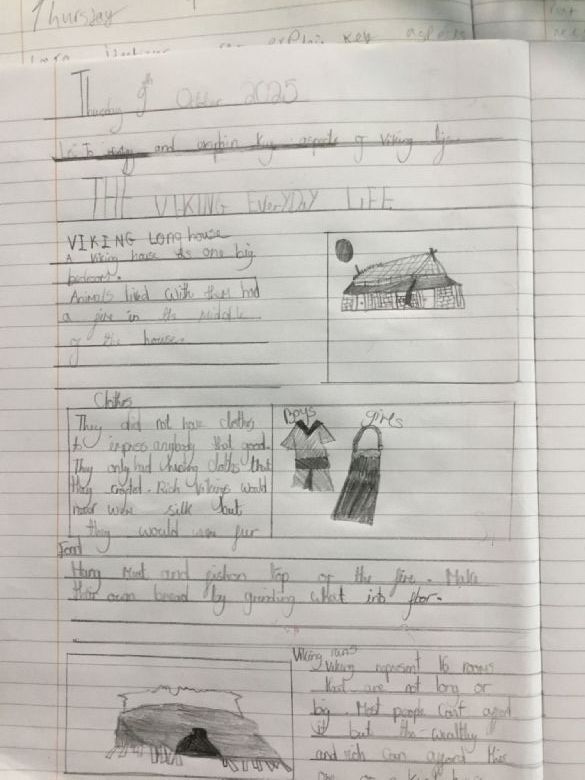 Thursday
explain key aspects
Thursday 9th October 2025
and explain key aspects of Viking
THE VIKING EVERYDAY LIFE
VIKING Longhouse
A Viking house is one big
bedroom.
Animals lived with them had
a fire in the middle
of the house.
Clothes
They did not have clothes
to impress anybody that good.
They only had clothes that
they . Rich Vikings would
wear silk but
they would wear fur
Boys
girls
Food
Hang Meat and fish on top of the fire. Make
their own bread by grinding into .
Viking runs
Viking represent 16 
that are not long or
big. Most people can't
it but the wealthy
and rich can afford this